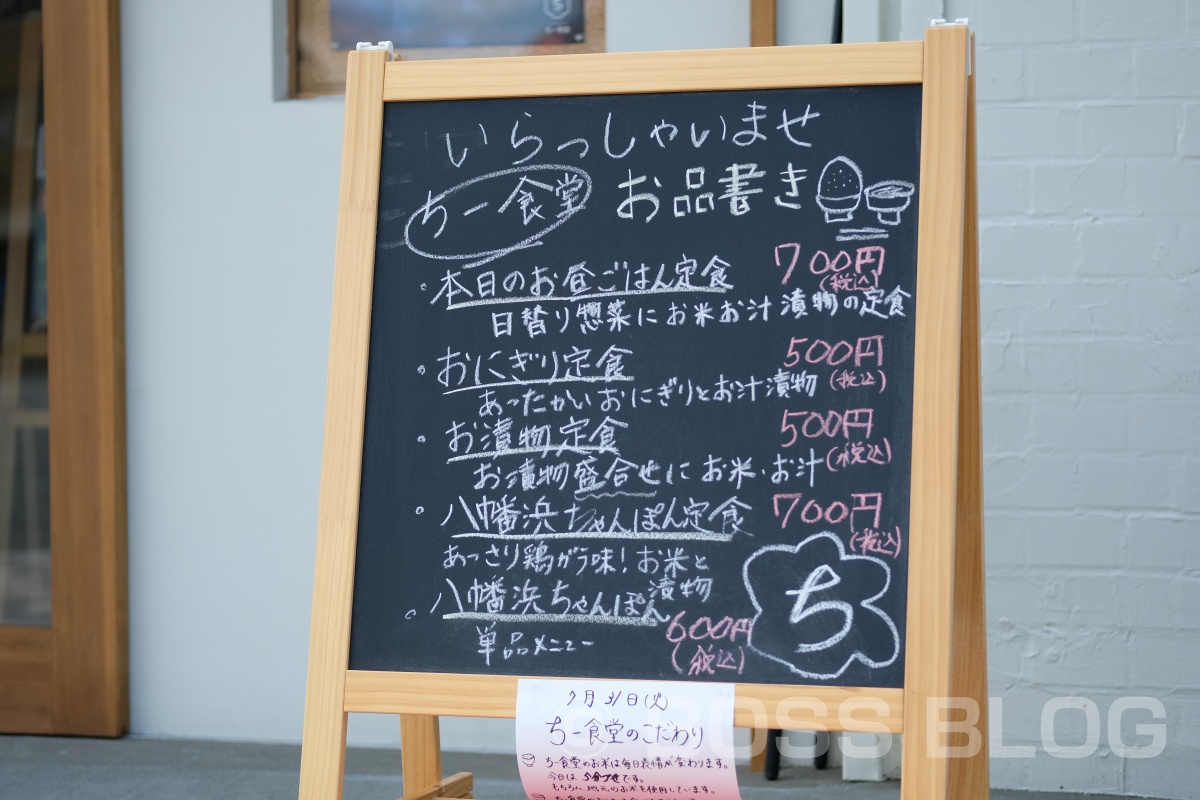 いらっしゃいませ
ちー食堂 お品書き
・本日のお昼ごはん定食 700円
(税込)
日替り惣菜にお米お汁漬物の定食
・おにぎり定食 500円
あったかいおにぎりとお汁漬物 (税込)
・お漬物定食 500円
お漬物盛合せにお米・お汁 (税込)
・八幡浜ちゃんぽん定食 700円
(税込)
あっさり鶏がら味!お米と
漬物
・八幡浜ちゃんぽん 600円
単品メニュー (税込)
ち
7月31日(火)
ちー食堂のこだわり
ちー食堂のお米は毎日表情が変わります。
今日は、5分づきです。
もちろん、地元のお米を使用しています。
BOSS BLOG